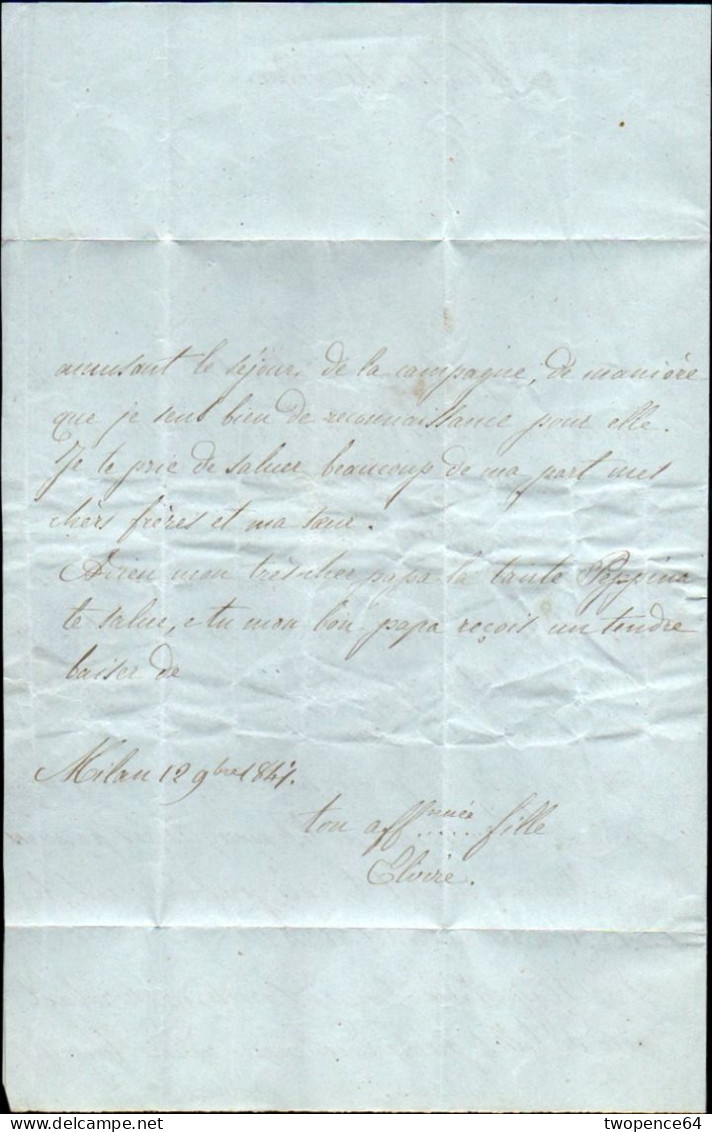 amusant le séjour, de la campagne, de manière
que je sens bien de reconnaissance pour elle.
Je te prie de saluer beaucoup de ma part mes
chers frères et ma sœur.
Adieu mon trèscher papa la tante Peppina
te salue, e tu mon bon papa reçois un tendre
baiser de
Milan 12 9bre 1847.
ton aff.mée..... fille
Elvire.
twopence64